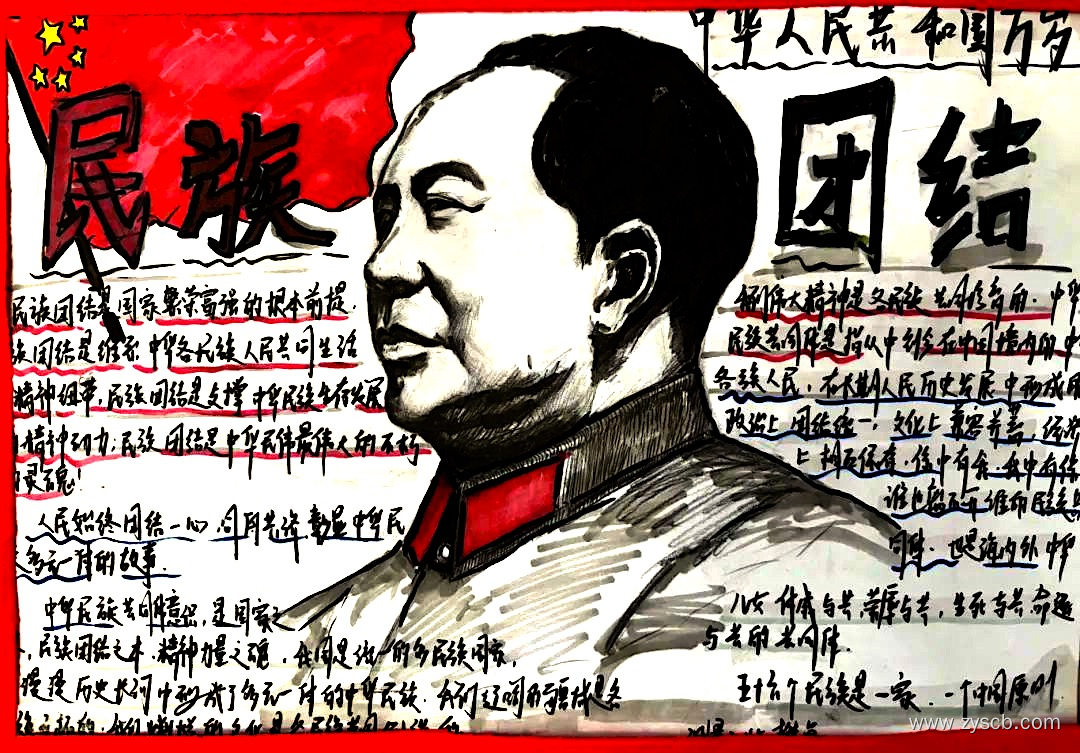 中华人民共和国万岁
民族
团结
民族团结是国家繁荣富强的根本前提.
族团结是维系 中华各民族人民共同生活
精神纽带,民族团结是支撑 中华民族生存发展
精神动力;民族团结是中华民族最伟大的不朽
灵魂.
人民始终团结一心 同用共济 彰显中华民
多元一体的故事.
中华民族共同体意识,是国家之
民族团结之本.精神力量之魂,我国是统一的多民族国家,
历史长河中形成了多元一体的中华民族.我们辽阔的疆域是各
伟大精神是各民族共同培育的.中华
民族共同体是指从中 在中国境内的中
各族人民,在长期人民历史发展中形成
政治上团结统一,文化上兼容并蓄,经济
上相互依存.你中有我.我中有你
谁也离不开谁的民族
同体.也是海内外中华
儿女休戚与共,荣辱与共,生死与共 命运
与共的共同体.
五十六个民族是一家.一个中国原则.
www.zyscb.com